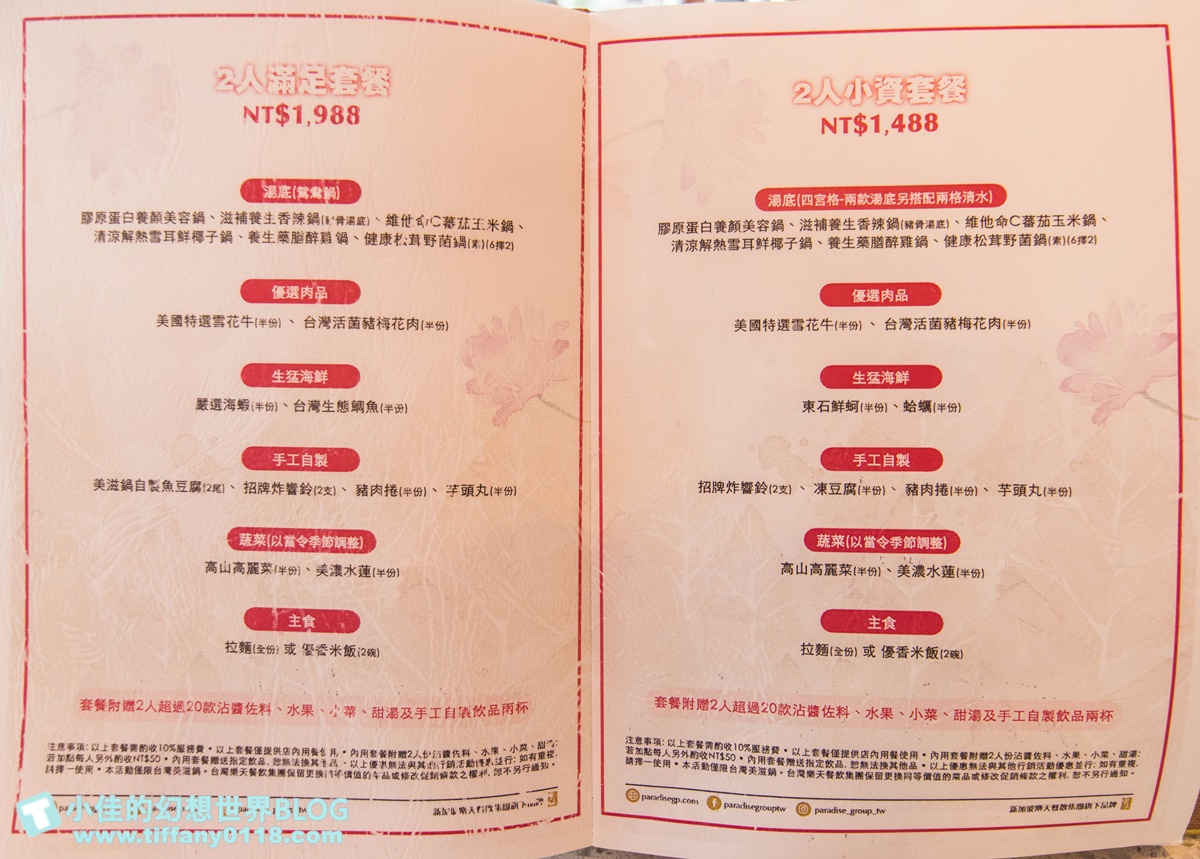 2人滿足套餐
NT$1,988
湯底(鴛鴦鍋)
膠原蛋白養顏美容鍋、滋補養生香辣鍋(豬骨湯底)、維他命C蕃茄玉米鍋、
清涼解熱雪耳鮮椰子鍋、養生藥膳醉雞鍋、健康松茸野菌鍋(素)(6擇2)
優選肉品
美國特選雪花牛(半份)、台灣活菌豬梅花肉(半份)
生猛海鮮
嚴選海蝦(半份)、台灣生態鯛魚(半份)
手工自製
美滋鍋自製魚豆腐(2尾)、招牌炸響鈴(2支)、豬肉捲(半份)、芋頭丸(半份)
蔬菜(以當令季節調整)
高山高麗菜(半份)、美濃水蓮(半份)
主食
拉麵(全份) 或 優香米飯(2碗)
套餐附贈2人超過20款沾醬佐料、水果、小菜、甜湯及手工自製飲品兩杯
注意事項: 以上套餐需酌收10%服務費・以上套餐僅提供店內用餐使用・內用套餐附贈2人份沾醬佐料、水果、小菜、甜湯;
若加點每人另外酌收NT$50・內用套餐贈送指定飲品, 恕無法換其他品・以上優惠無法與其他行銷活動優惠並行; 如有重複,
請擇一使用・本活動僅限台灣美滋鍋。台灣樂天餐飲集團保留更換同等價值的菜品或修改促銷條款之權利, 恕不另行通知。
新加坡樂天餐飲集團旗下品牌
小佳的幻想世界BLOG
www.tiffany0118.com
2人小資套餐
NT$1,488
湯底(四宮格-兩款湯底另搭配兩格清水)
膠原蛋白養顏美容鍋、滋補養生香辣鍋(豬骨湯底)、維他命C蕃茄玉米鍋、
清涼解熱雪耳鮮椰子鍋、養生藥膳醉雞鍋、健康松茸野菌鍋(素)(6擇2)
優選肉品
美國特選雪花牛(半份)、台灣活菌豬梅花肉(半份)
生猛海鮮
東石鮮蚵(半份)、蛤蠣(半份)
手工自製
招牌炸響鈴(2支)、凍豆腐(半份)、豬肉捲(半份)、芋頭丸(半份)
蔬菜(以當令季節調整)
高山高麗菜(半份)、美濃水蓮(半份)
主食
拉麵(全份) 或 優香米飯(2碗)
套餐附贈2人超過20款沾醬佐料、水果、小菜、甜湯及手工自製飲品兩杯
注意事項: 以上套餐需酌收10%服務費・以上套餐僅提供店內用餐使用・內用套餐附贈2人份沾醬佐料、水果、小菜、甜湯;
若加點每人另外酌收NT$50・內用套餐贈送指定飲品, 恕無法換其他品・以上優惠無法與其他行銷活動優惠並行; 如有重複,
請擇一使用・本活動僅限台灣美滋鍋。台灣樂天餐飲集團保留更換同等價值的菜品或修改促銷條款之權利, 恕不另行通知。
paradisegp.com paradisegrouptw paradise_group_tw 新加坡樂天餐飲集團旗下品牌